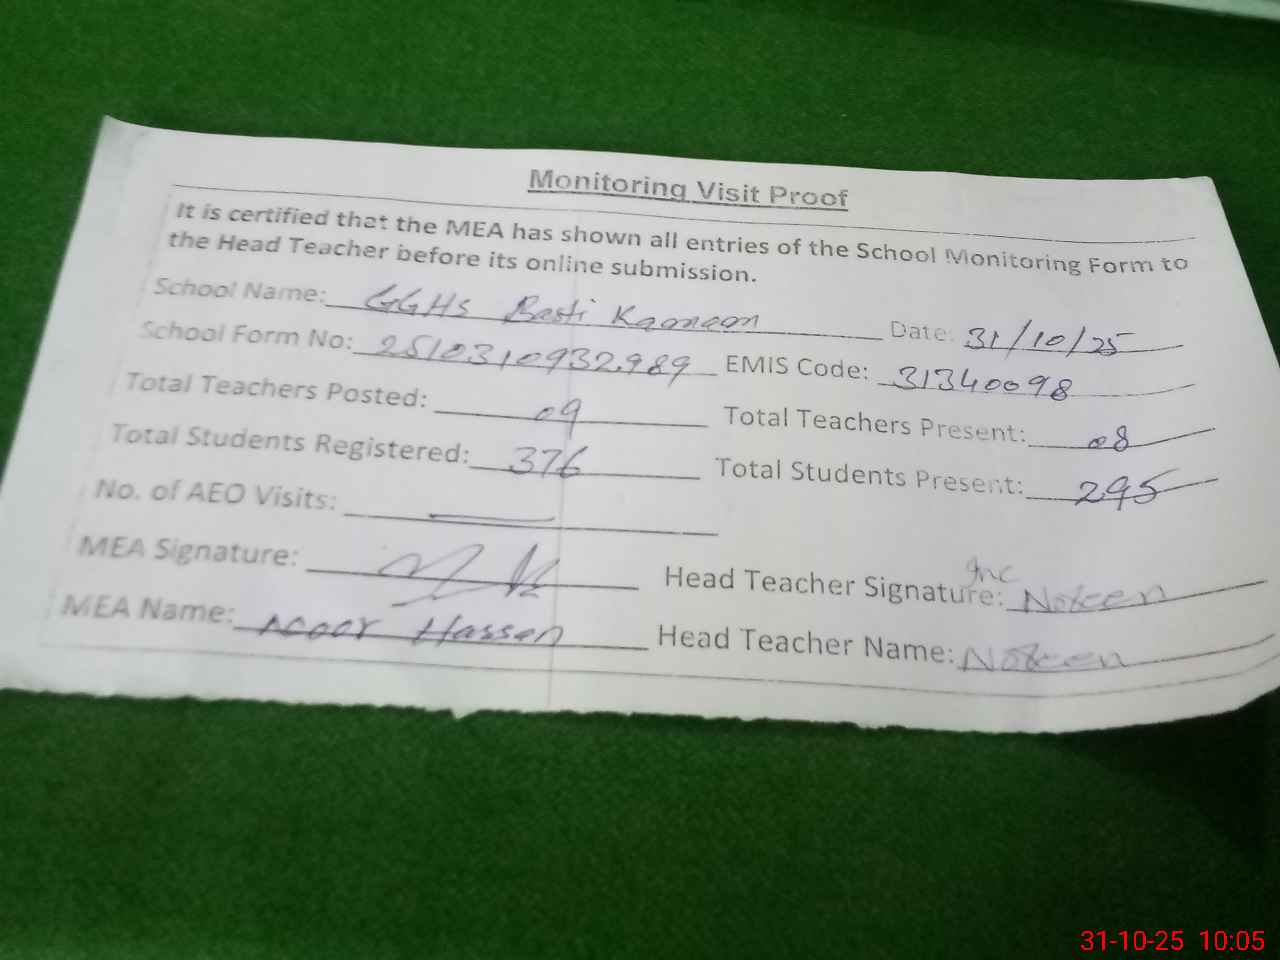 Monitoring Visit Proof
It is certified that the MEA has shown all entries of the School Monitoring Form to
the Head Teacher before its online submission.
School Name: GGHS Basti Kamoon Date: 31/10/25
School Form No: 2510310932989 EMIS Code: 31340098
Total Teachers Posted: 09 Total Teachers Present: 08
Total Students Registered: 376 Total Students Present: 295
No. of AEO Visits: —
MEA Signature: Head Teacher Signature: Inc Noreen
MEA Name: Noor Hassan Head Teacher Name: Noreen
31-10-25 10:05